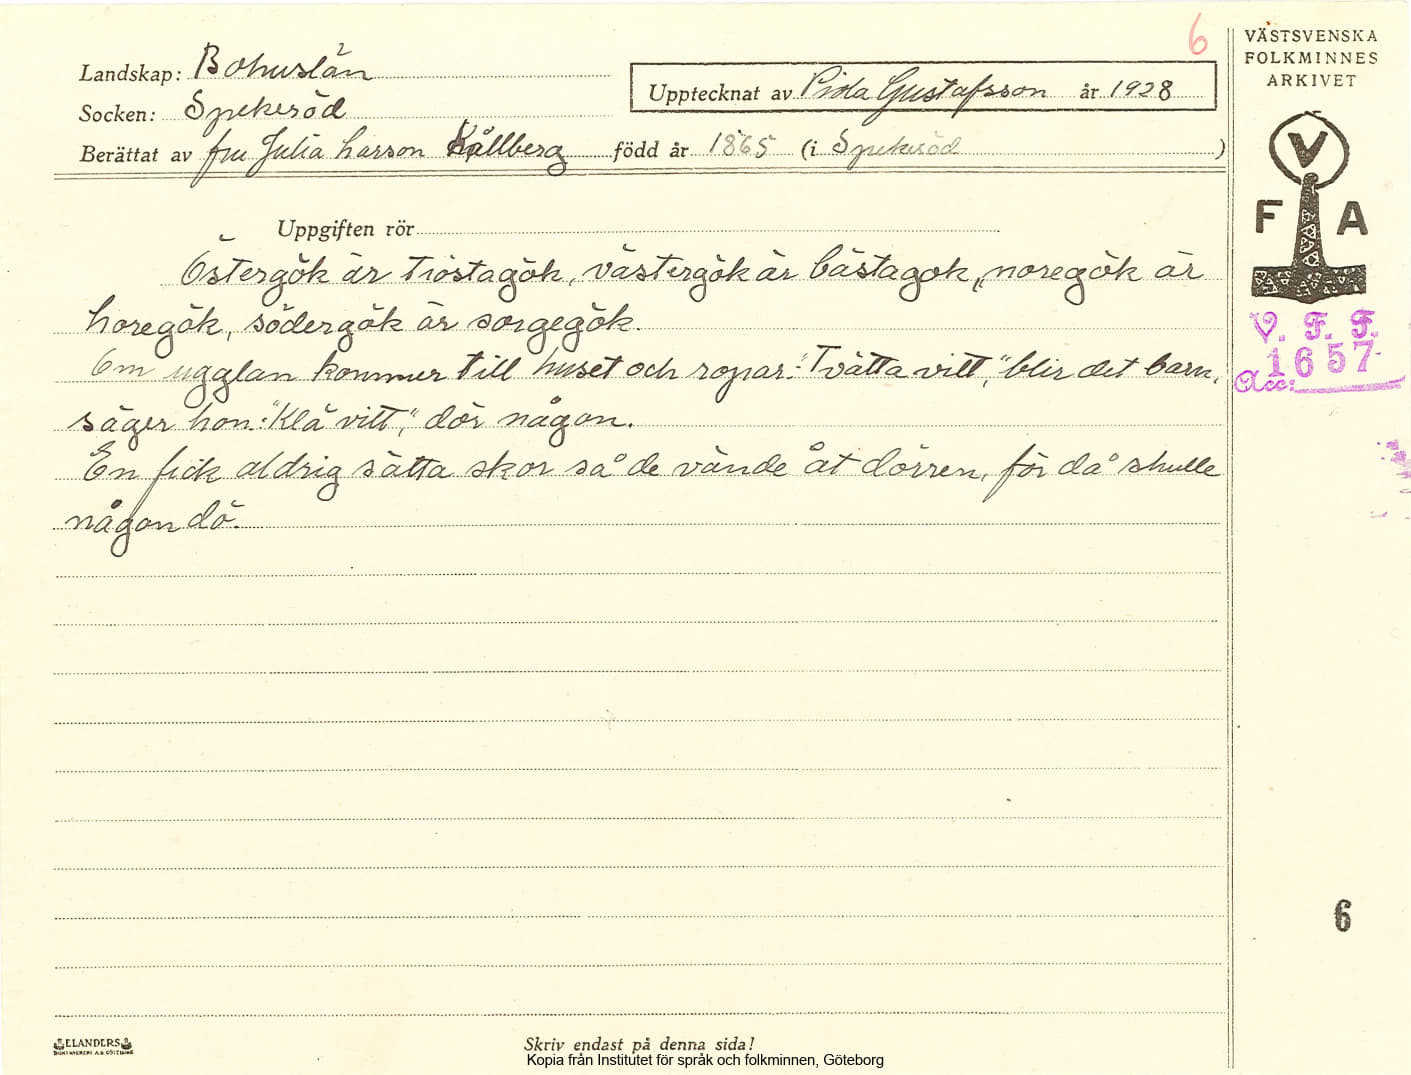 6
VÄSTSVENSKA
FOLKMINNES
ARKIVET
Landskap: Bohuslän
Upptecknat av Gustafsson år 1928
Socken: Spekeröd
Berättat av fru Julia Larson Kållberg född år 1865 (i Spekeröd )
V
F A
Uppgiften rör
Östergök är tröstagök, västergök är bästagök, noregök är
horegök, södergök är sorgegök.
Om ugglan kommer till huset och ropar: "Tvätta vitt," blir det barn,
säger hon: "Klä vitt," dör någon.
En fick aldrig sätta skor så de vände åt dörren, för då skulle
någon dö.
V. F. F.
1657
Acc:
6
ELANDERS
BOKTRYCKERI A.B. GÖTEBORG
Skriv endast på denna sida!
Kopia från Institutet för språk och folkminnen, Göteborg